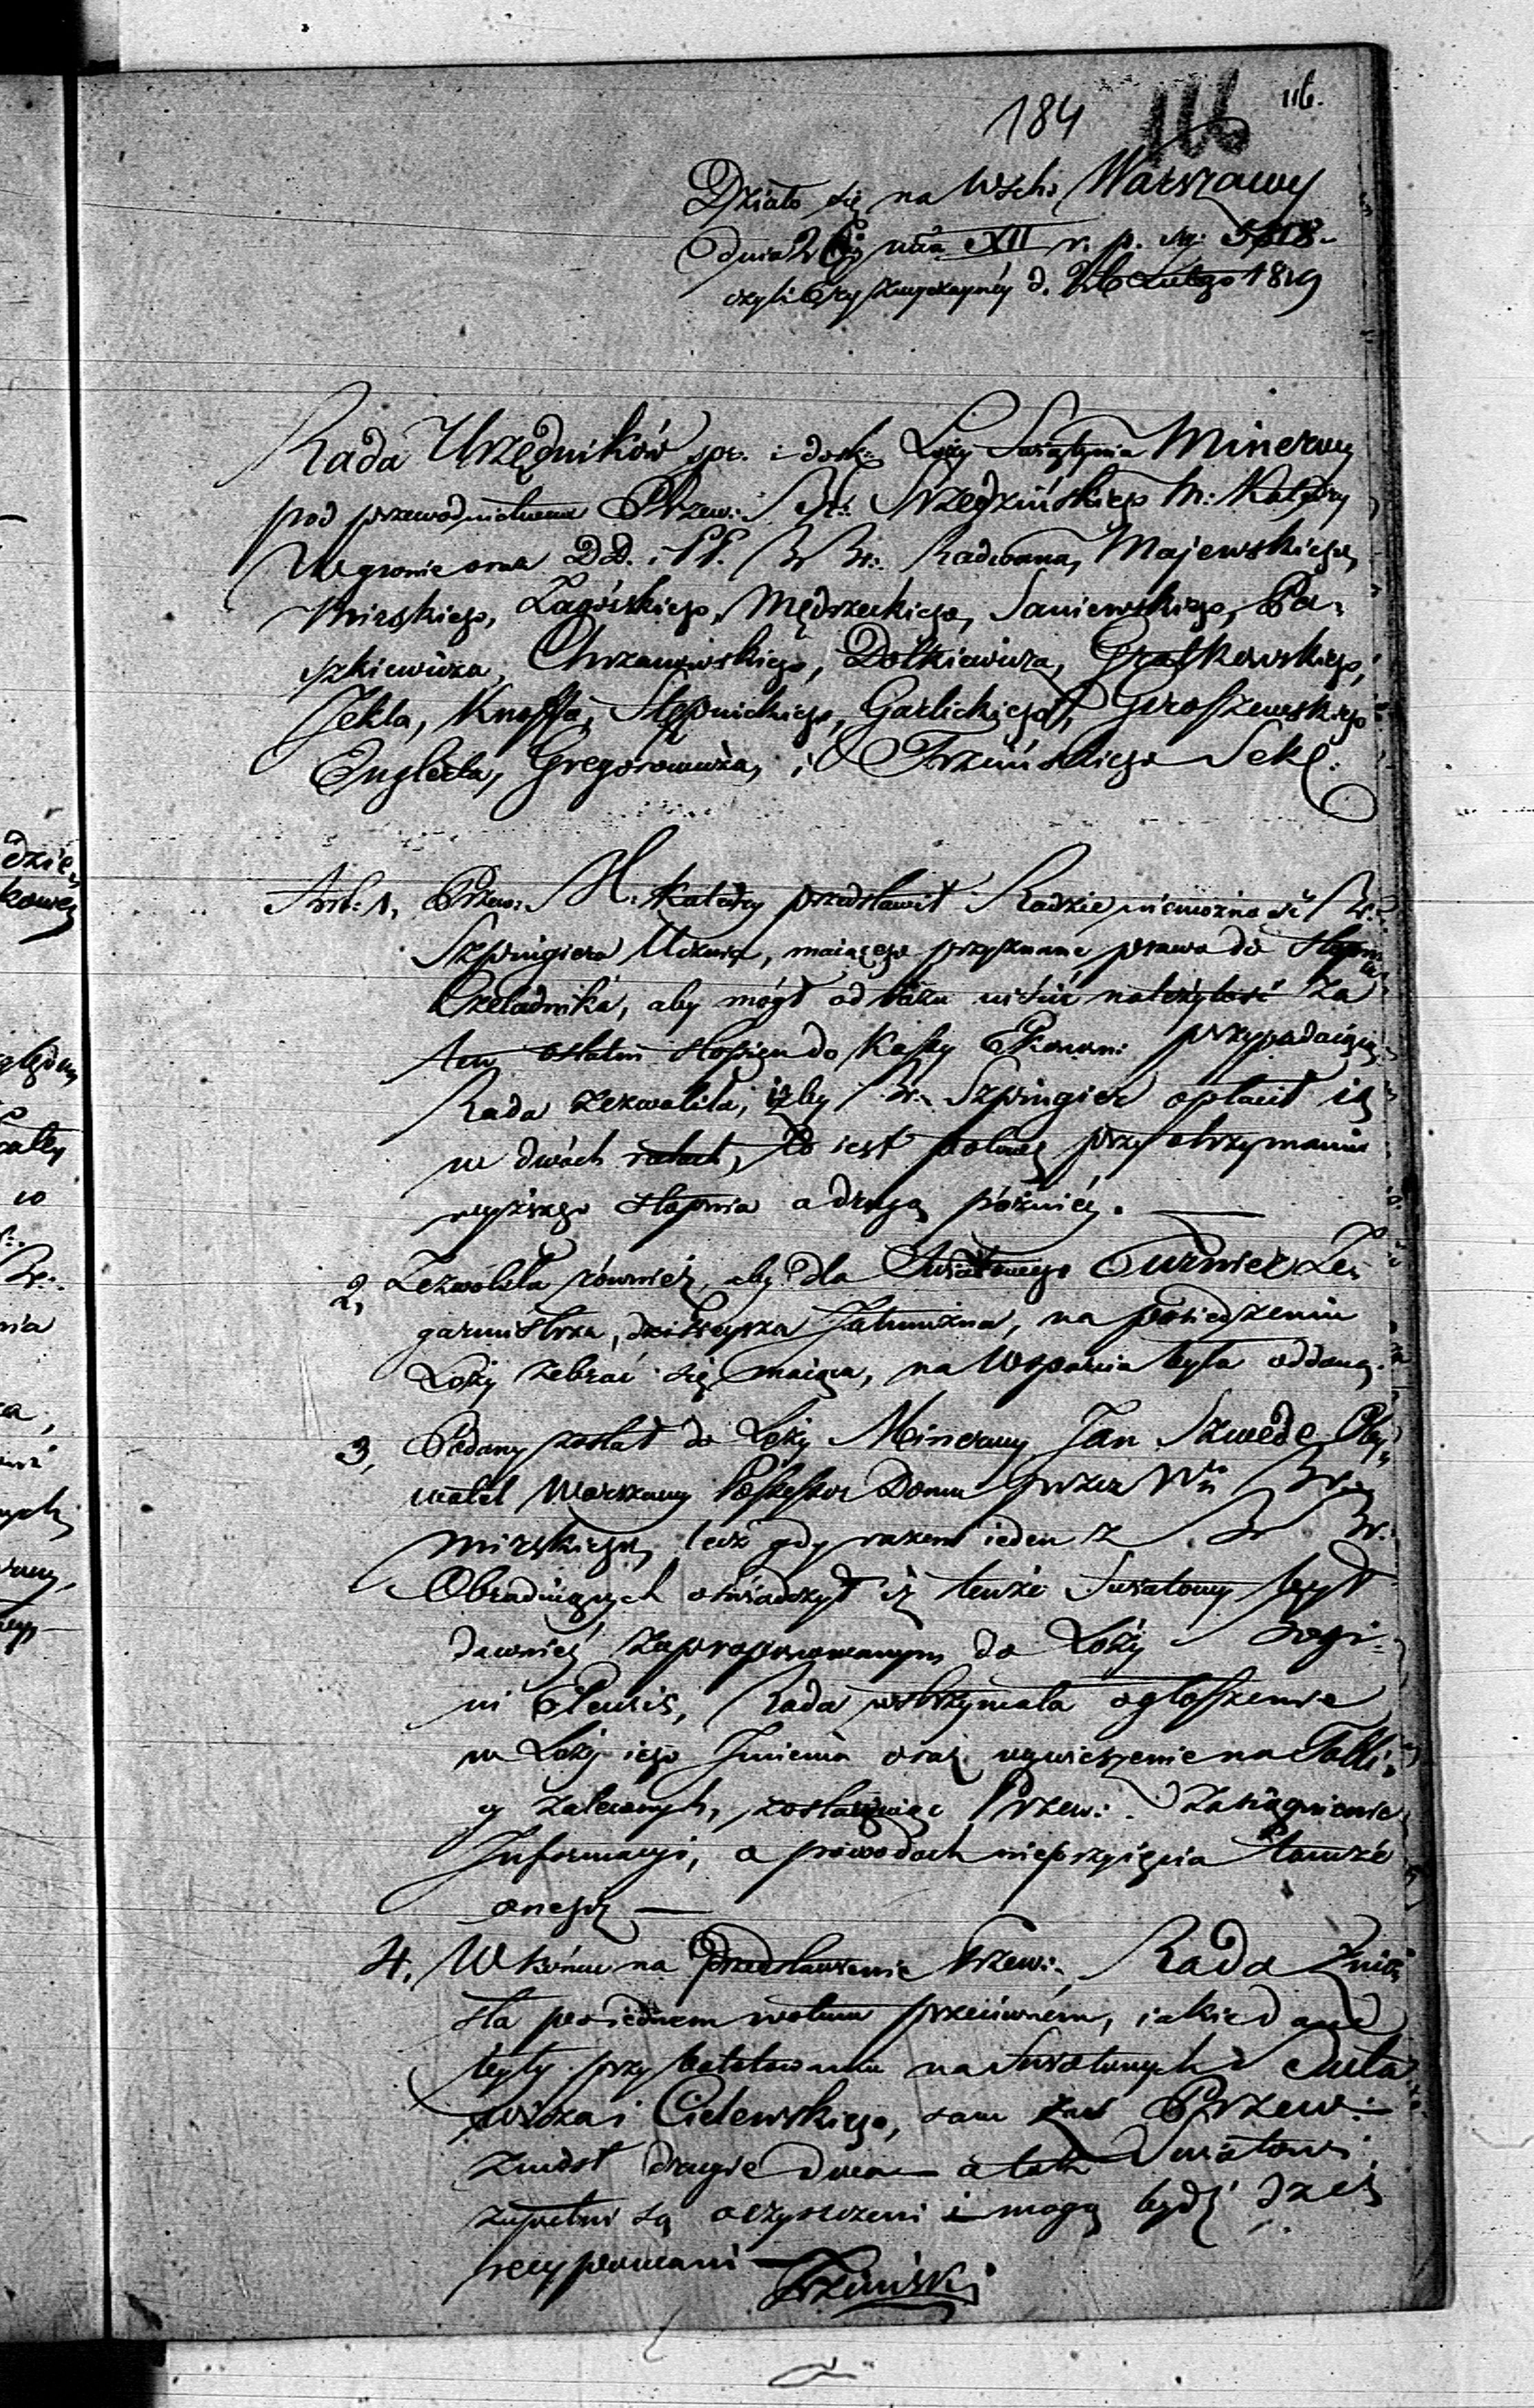 184 116 116.
Działo się na Wsch: Warszawy
dnia 26go mca XII r. p. św: 5818.
czyli Ery zwyczayney d. 26 Lutego 1819
Rada Urzędników spr. i dosk: Loży Świątynia Minerwy
pod przewodnictwem Przew: Br: Srzedzińskiego M: Katedry
W gronie oraz DD. i PP. BBr: Radwana, Majewskiego,
Mirskiego, Zagórskiego, Mędrzeckiego, Saniewskiego, Pa-
szkiewicza, Chrzanowskiego, Dołkiewicza, Grotkowskiego,
Jekla, Knoffa, Stępnickiego, Garlickiego, Giroszewskiego
Englerta, Gregorowicza, i Trzcińskiego Sekr.
Art: 1, Przew: M: Katedry przedstawił Radzie niemożność Br:
Szpringiera Ucznia, maiącego przyznane prawo do stopnia
Czeladnika, aby mógł od razu uiścić należytość za
ten ostatni stopień do Kassy Ekonomi: przypadaiącą,
Rada zezwoliła, iżby Br: Szpringier opłacił ią
w dwóch ratach, to iest połowę przy otrzymaniu
wyższego stopnia a drugą późniéy. —
2, Zezwoliła również, aby dla Światowego Turnier Ze-
garmistrza, dzisieysza Jałmużna, na posiedzeniu
Loży zebrać się maiąca, na Wsparcie była oddaną.
3, Podany został do Loży Minerwy Jan Szwede Oby-
watel Warszawy Possessor Domu przez Wo Br:
Mirskiego, lecz gdy razem ieden z BBr:
Obraduiących oświadczył iż tenże Światowy był
dawniéy zaproponowanym do Loży Bogi-
ni Eleusis, Rada wstrzymała ogłoszenie
w Loży iego Imienia oraz wywieszenie na Tabli-
cy zalecanych, zostawuiąc Przew: zasiągnienie
Informacyi, o powodach nieprzyięcia tamże
onego —
4, W końcu na przedstawienie Przew: Rada Znio-
sła po iednem wotum przeciwnem, iakie dane
były przy balotowaniu na Światowych
i Cielewskiego, sam zaś Przew:
zniósł drugie dwa — a tak Światowi
zupełni są oczyszczeni i mogą bydź dziś
recypowani —
Trzciński